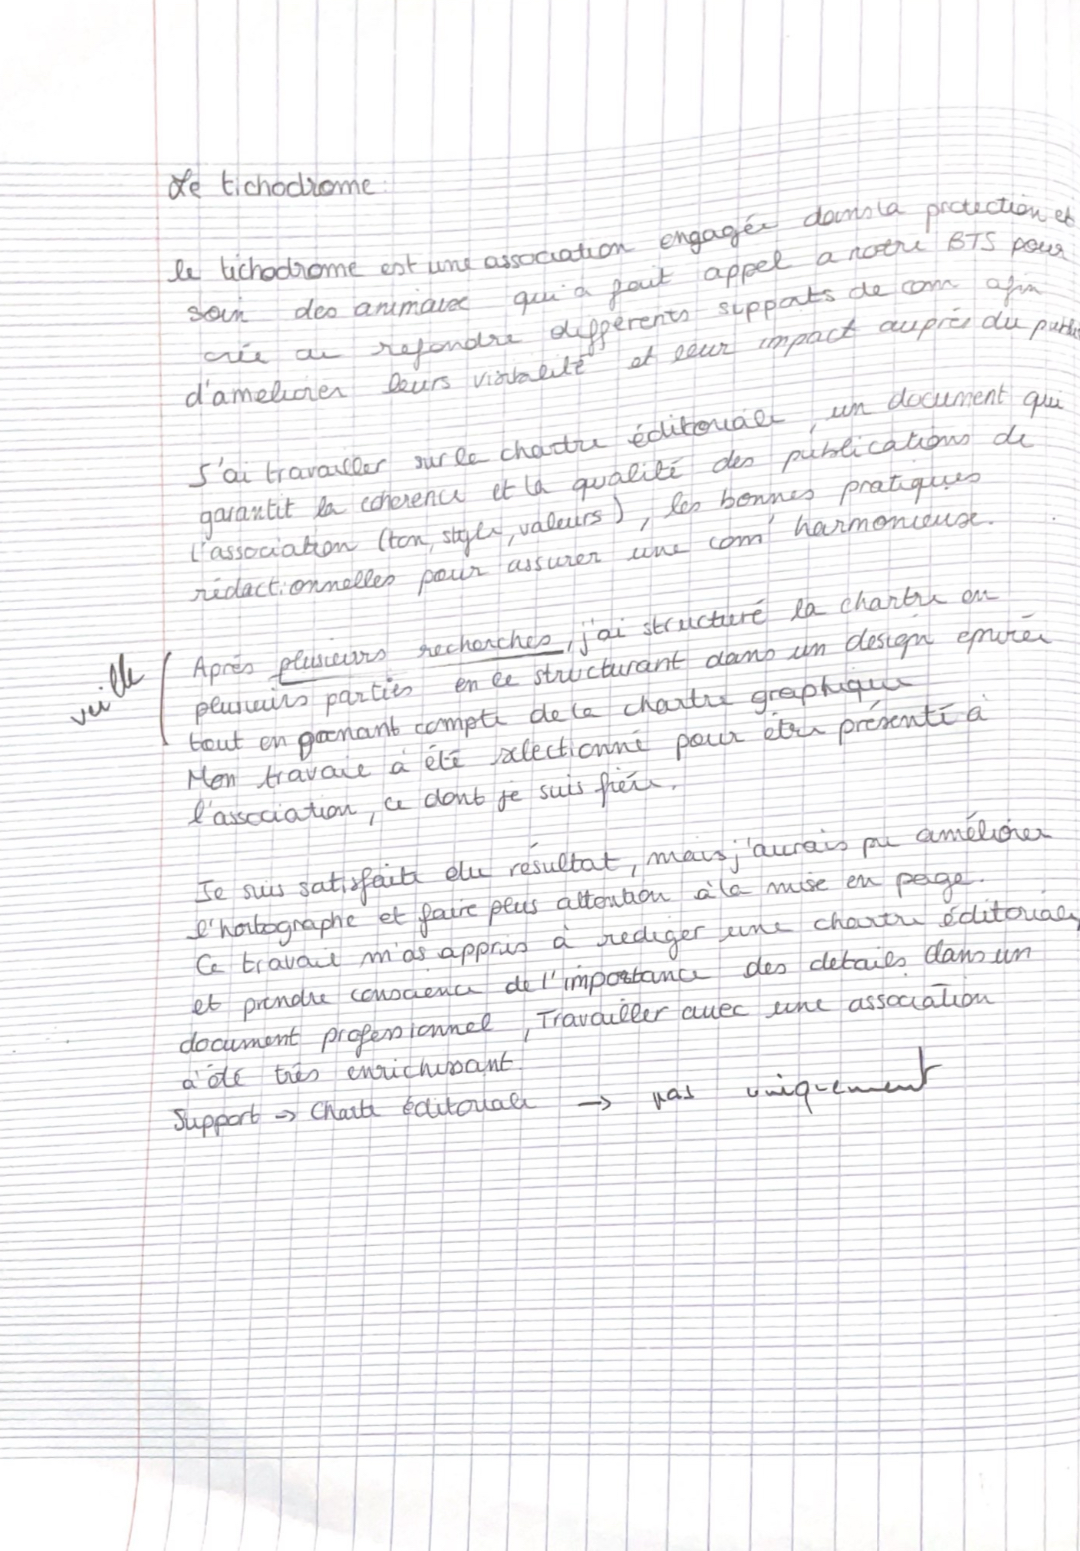 Le tichodrome
le tichodrome est une association engagée dans la protection et
soin des animaux qui a fait appel a notre BTS pour
crée au refondre différents supports de com afin
d'ameliorer leurs visibilité et leur impact auprès du public
J'ai travailler sur le chartre éditoriale, un document qui
garantit la coherence et la qualité des publications de
l'association (ton, style, valeurs), les bonnes pratiques
rédactionnelles pour assurer une com' harmonieuse.
Après plusieurs recherches, j'ai structuré la chartre en
veille
plusieurs parties en le structurant dans un design épurée
tout en prenant compte de la chartre graphique
Mon travail a été sélectionné pour être présenté à
l'association, ce dont je suis fière.
Je suis satisfaite du résultat, mais j'aurais pu améliorer
l'hortographe et faire plus attention à la mise en page.
Ce travail m'as appris à rediger une chartre éditoriale
et prendre conscience de l'importance des details dans un
document professionnel, Travailler avec une association
a été très enrichissant.
Support → Charte éditoriale → pas uniquement